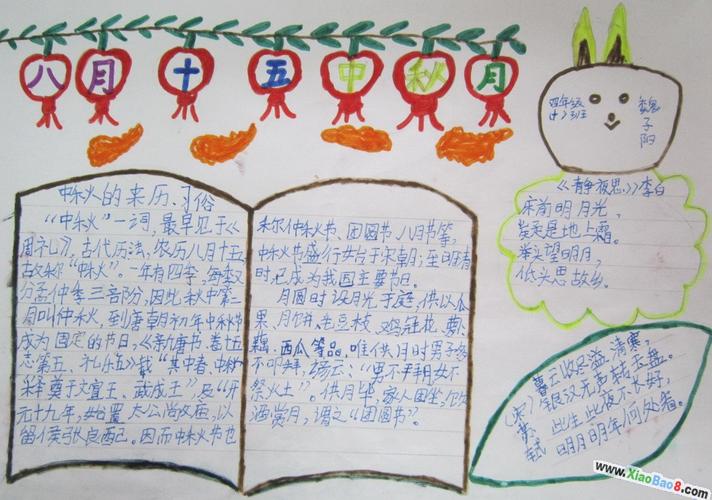 八月十五中秋月
四年级
(十)班
魏子阳
中秋的来历、习俗
"中秋"一词,最早见于《
周礼》,古代历法,农历八月十五
故称"中秋"。一年有四季,每季
分孟仲季三部份,因此秋中第二
月叫仲秋,到唐朝初年中秋节
成为固定的节日,《新唐书·卷十五
志第五·礼乐五》载"其中春、中秋
释奠于文宣王、武成王",及"开
元十九年,始置太公尚父庙,以
留侯张良配。因而中秋节也
称仲秋节、团圆节、八月节等,
中秋节盛行始于宋朝;至明清
时,已成为我国主要节日。
月圆时设月光于庭,供以瓜
果、月饼、毛豆枝、鸡冠花、萝卜、
藕、西瓜等品,唯供月时男子多
不叩拜,谚云:"男不拜月女不
祭火土"。供月毕,家人团坐,饮
酒赏月,谓之"团圆节"。
《静夜思》李白
床前明月光,
疑是地上霜。
举头望明月,
低头思故乡。
(宋)苏轼
暮云收尽溢清寒,
银汉无声转玉盘。
此生此夜不长好,
明月明年何处看。
www.XiaoBao8.com